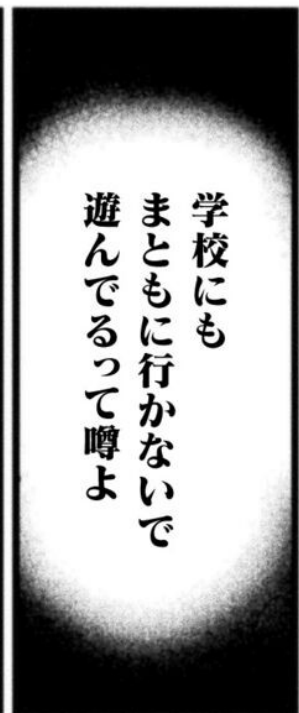 学校にも
まともに行かないで
遊んでるって噂よ